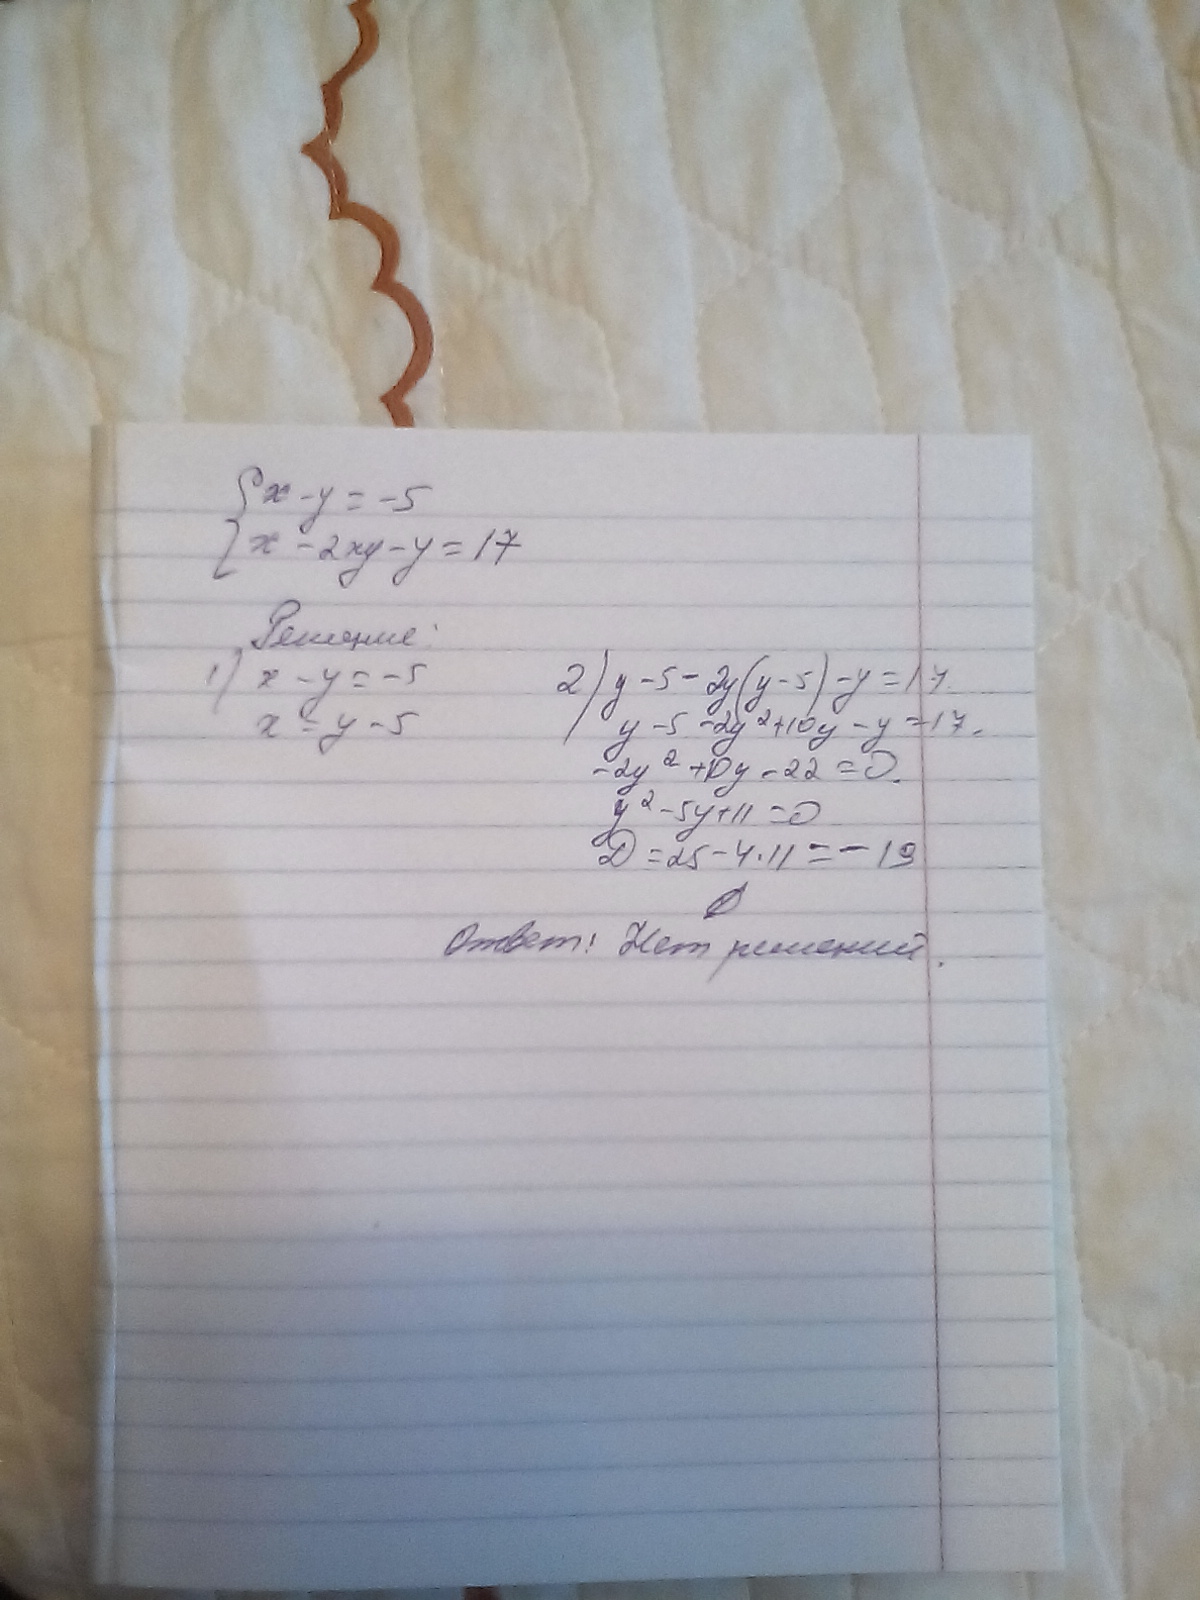 {x - y = -5
{x - 2xy - y = 17
Решение:
1) x - y = -5
x = y - 5
2) y - 5 - 2y(y - 5) - y = 17
y - 5 - 2y² + 10y - y = 17.
-2y² + 10y - 22 = 0.
y² - 5y + 11 = 0
D = 25 - 4·11 = -19
∅
Ответ: Нет решений.